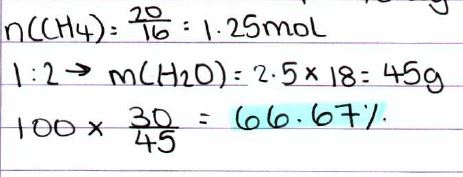 n(CH4) = 20/16 = 1.25mol
1:2 → m(H2O) = 2.5 × 18 = 45g
100 × 30/45 = 66.67%.